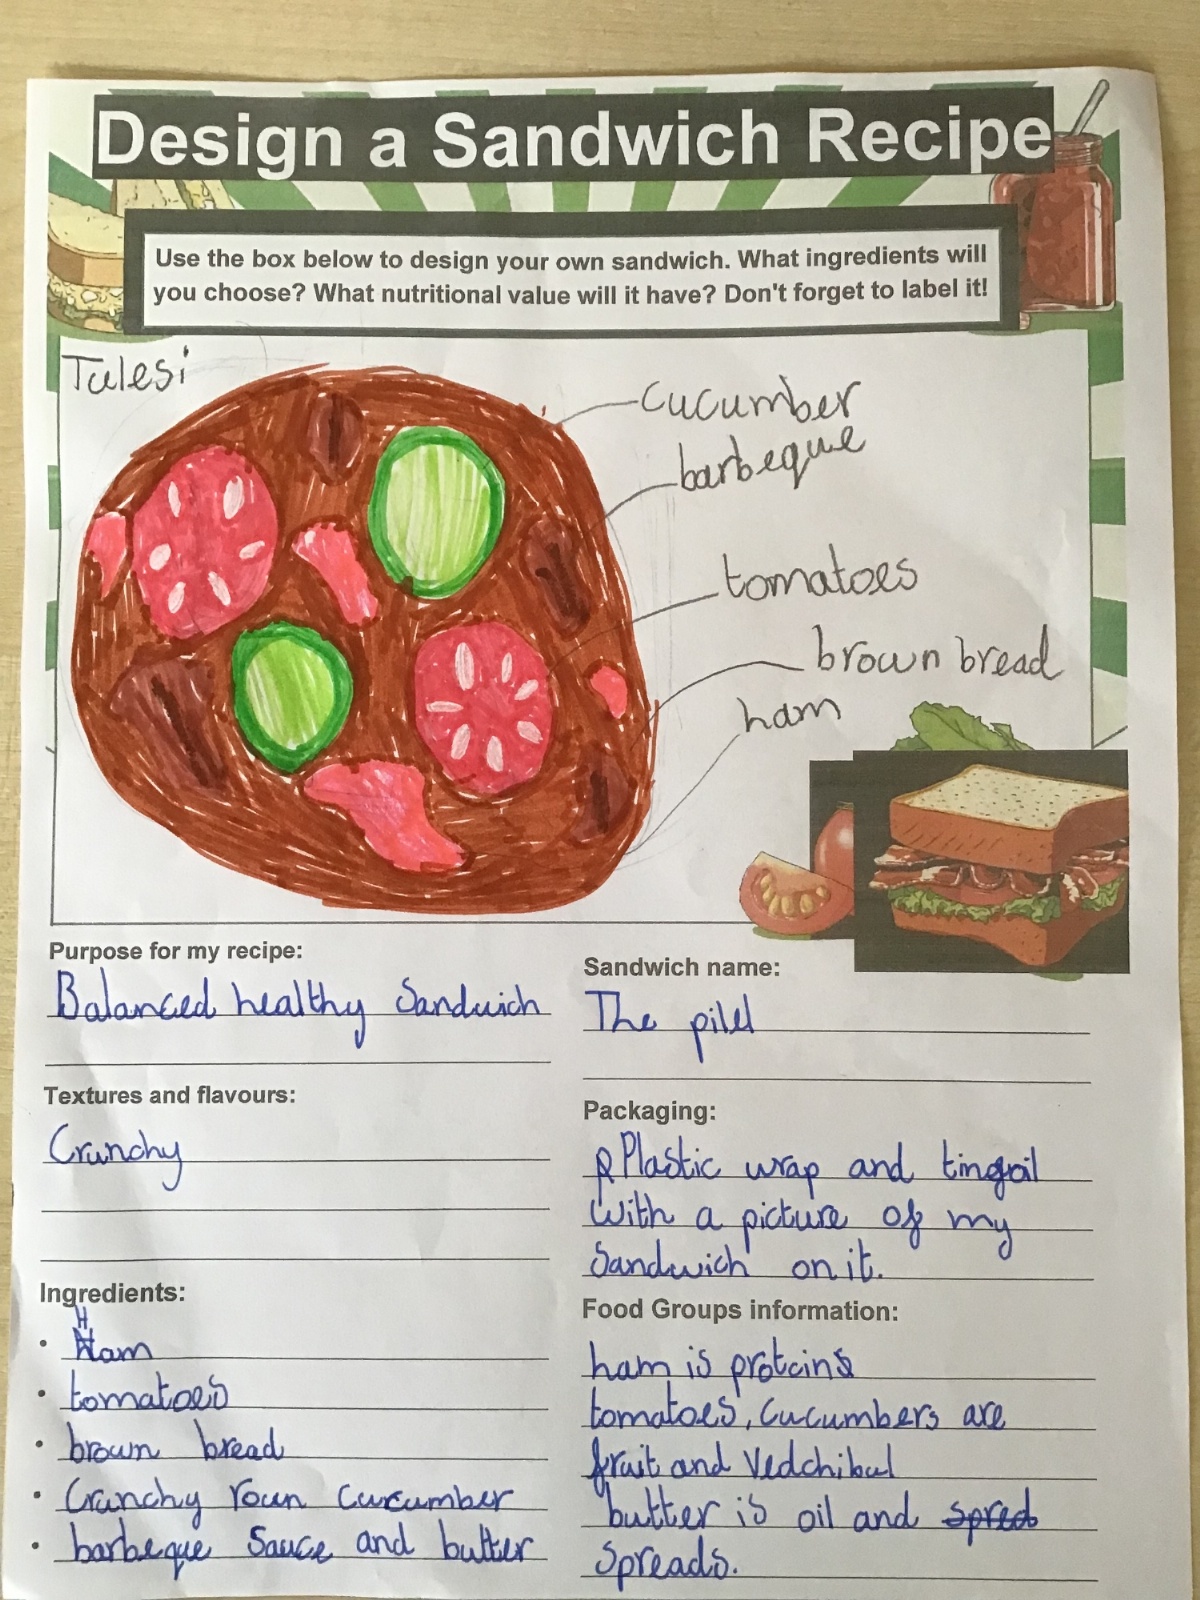 Design a Sandwich Recipe
Use the box below to design your own sandwich. What ingredients will
you choose? What nutritional value will it have? Don't forget to label it!
Tulesi
cucumber
barbeque
tomatoes
brown bread
ham
Purpose for my recipe:
Balanced healthy Sandwich
Textures and flavours:
Crunchy
Ingredients:
• Ham
• tomatoes
• brown bread
• Crunchy roun Cucumber
• barbeque Sauce and butter
Sandwich name:
The pilel
Packaging:
Plastic wrap and tingoil
with a picture of my
Sandwich on it.
Food Groups information:
ham is proteins
tomatoes, Cucumbers are
fruit and Vedchibul
butter is oil and spred
spreads.